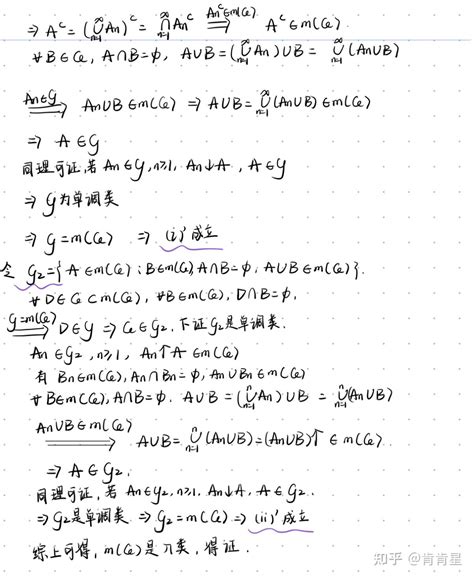 ⇒ Aᶜ = (⋃ₙ₌₁^∞ An)ᶜ = ⋂ₙ₌₁^∞ Anᶜ =(Anᶜ∈m(𝒞))⇒ Aᶜ ∈ m(𝒞)
∀B∈𝒞, A∩B=φ, A∪B = (⋃ₙ₌₁^∞ An)∪B = ⋃ₙ₌₁^∞ (An∪B)
=(An∈𝒢)⇒ An∪B ∈ m(𝒞) ⇒ A∪B = ⋃ₙ₌₁^∞ (An∪B) ∈ m(𝒞)
⇒ A∈𝒢
同理可证,若An∈𝒢, n≥1, An↓A, A∈𝒢
⇒ 𝒢为单调类
⇒ 𝒢=m(𝒞) ⇒ (i)'成立
令 𝒢₂={A∈m(𝒞): B∈m(𝒞), A∩B=φ, A∪B∈m(𝒞)}.
∀D∈𝒞⊂m(𝒞), ∀B∈m(𝒞), D∩B=φ,
=(𝒢=m(𝒞))⇒ D∈𝒢 ⇒ 𝒞∈𝒢₂, 下证𝒢₂是单调类.
An∈𝒢₂, n≥1, An↑A∈m(𝒞)
有 Bn∈m(𝒞), An∩Bn=φ, An∪Bn∈m(𝒞)
∀B∈m(𝒞), A∩B=φ. A∪B = (⋃ₙ₌₁^∞ An)∪B = ⋃ₙ₌₁ⁿ(An∪B)
=(An∪B∈m(𝒞))⇒ A∪B = ⋃ₙ₌₁ⁿ(An∪B)=(An∪B)↑ ∈ m(𝒞).
⇒ A∈𝒢₂.
同理可证, 若An∈𝒢₂, n≥1, An↓A, A∈𝒢₂.
⇒𝒢₂是单调类 ⇒ 𝒢₂=m(𝒞) ⇒ (ii)'成立
综上可得, m(𝒞)是π类, 得证.
知乎 @肯肯星